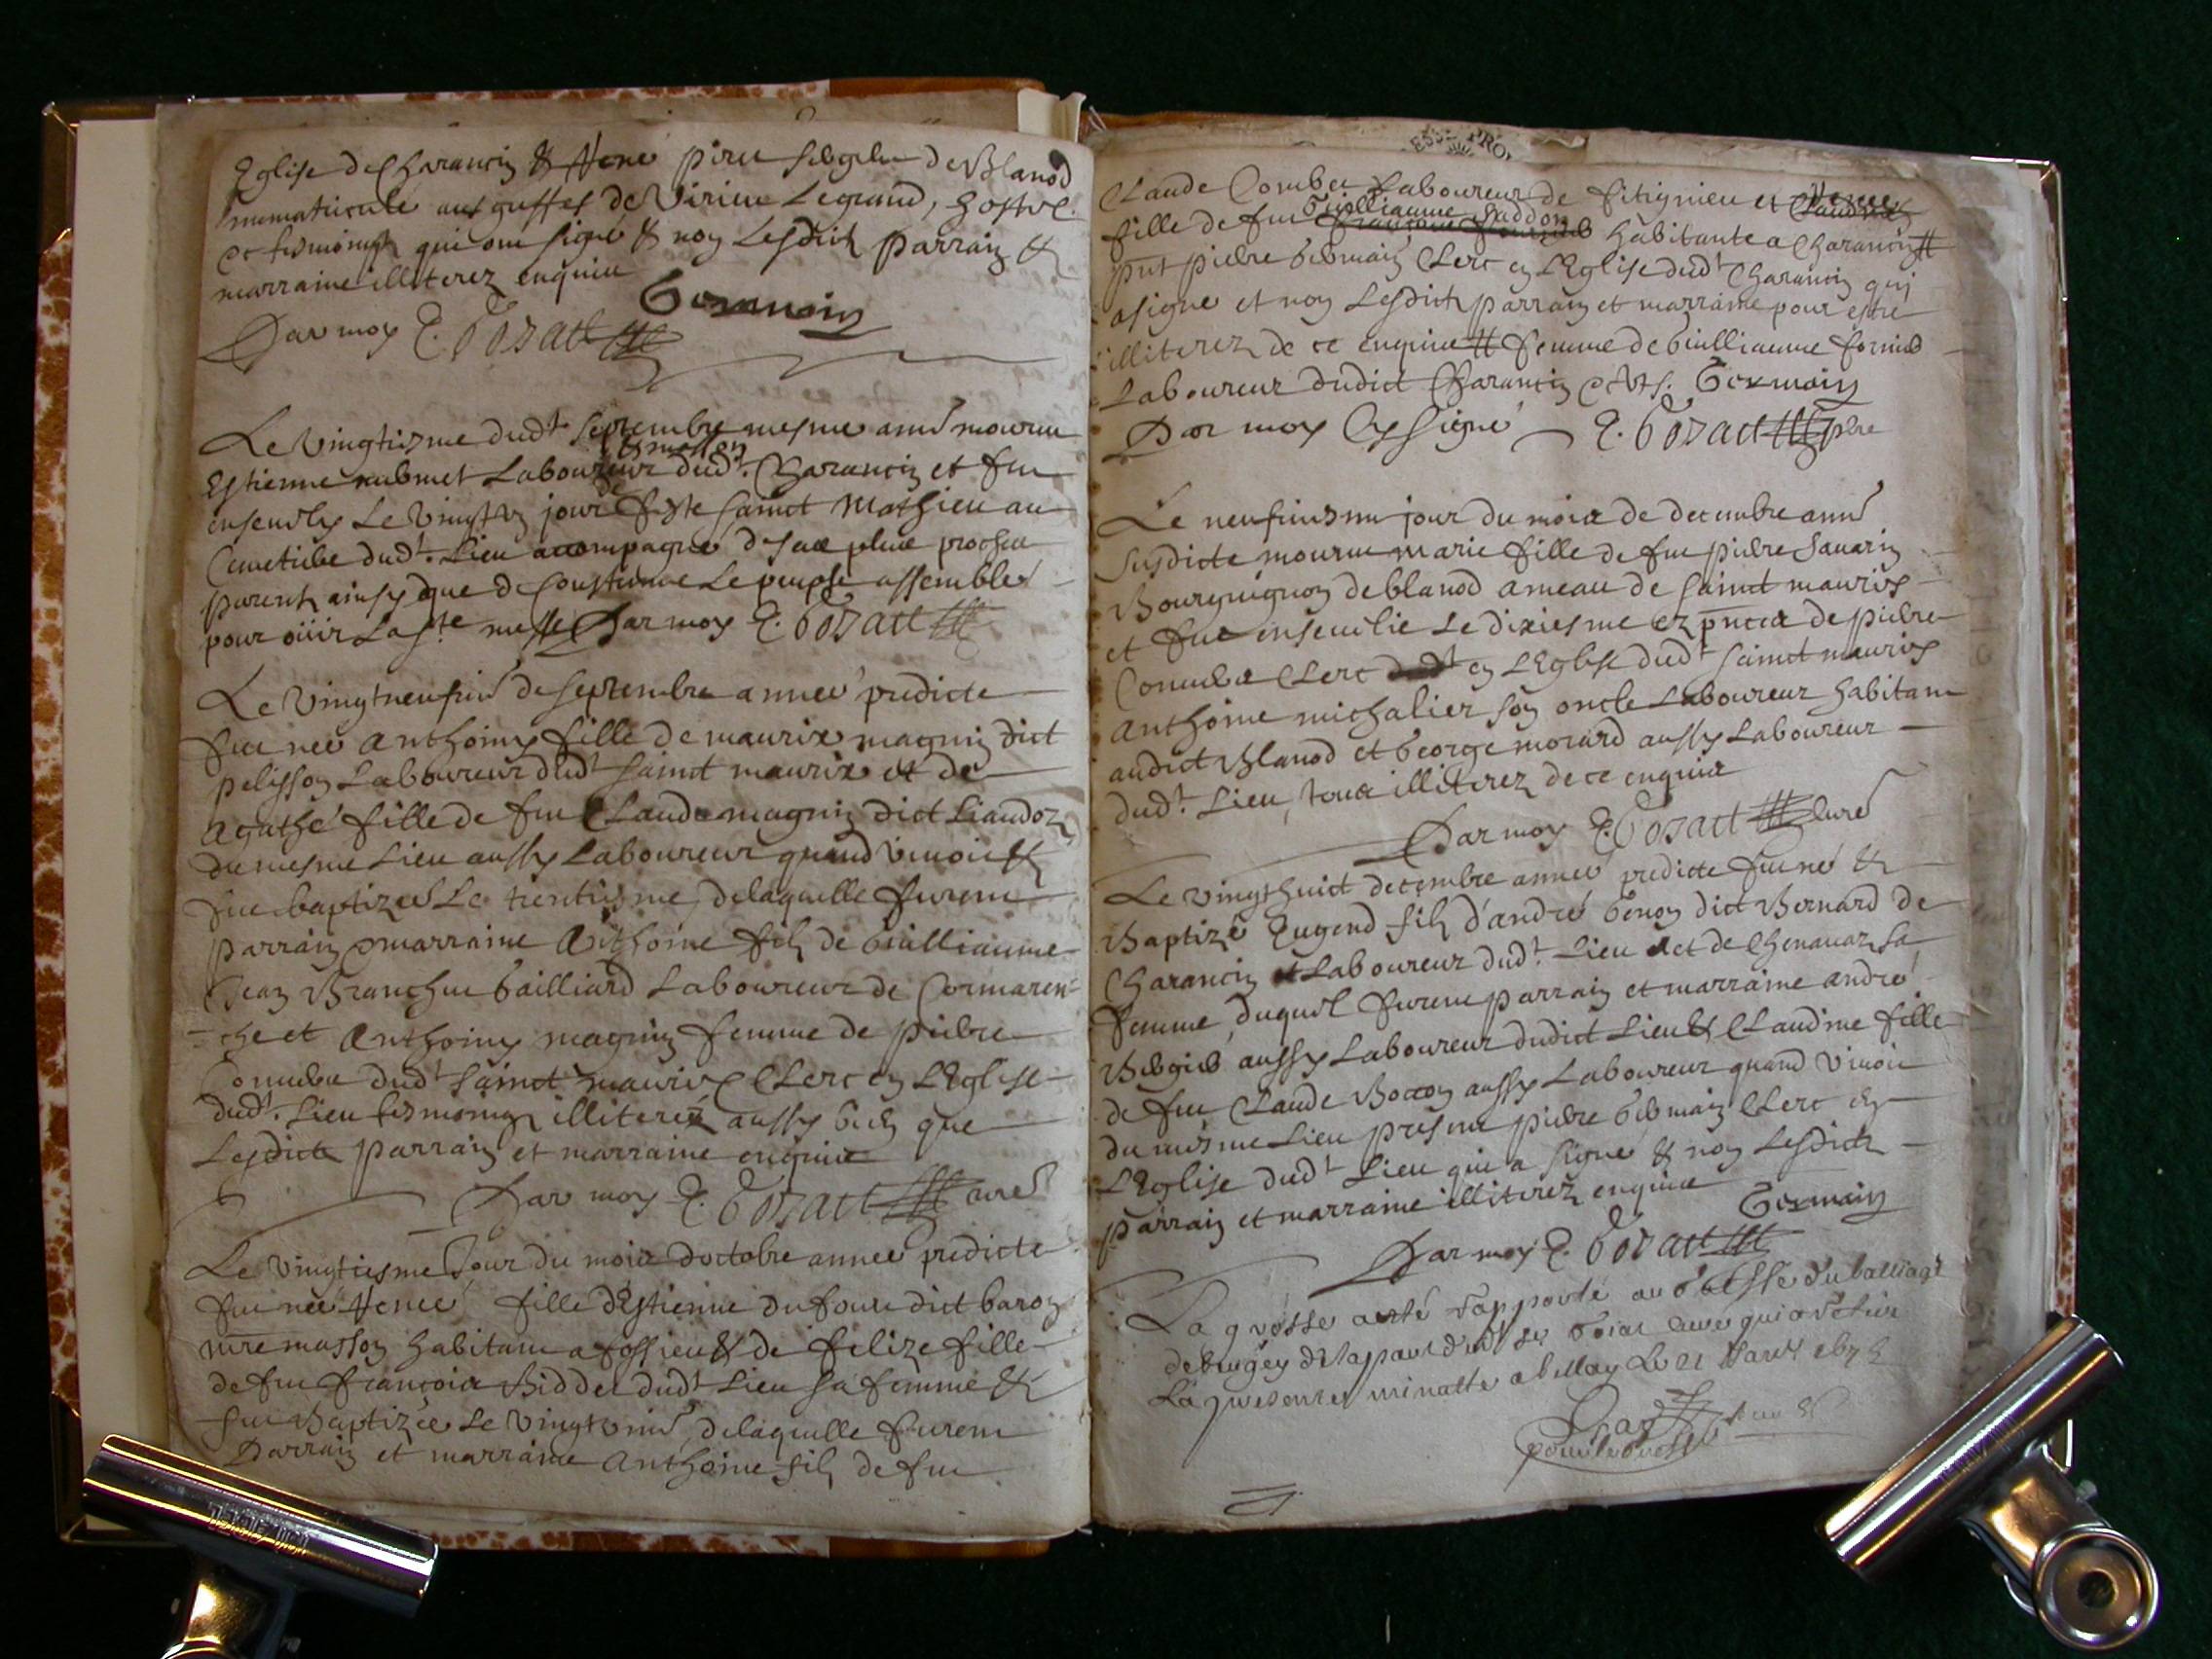 Eglise de Charancin & Hené de Blanod
immatriculé aux greffes de Virieu Legrand,
qui ont signé & non Lesdictz parrain &
marraine illiterez enquis
Germain
Par moy
Le vingtiesme dudt septembre mesme année mourut
& masson
Estienne Laboureur dudt. Charancin et fut
ensevely Le vingt un jour feste sainct Mathieu au
Cimetiere dudt. Lieu accompagné de ses plus proches
parentz ainsy que de coustume Le peuple assemblé
pour oüir La ste messe Par moy
Le vingtneufie de septembre année predicte
fut née anthoiny fille de maurix magnin dict
pelisson Laboureur dudt sainct maurix et de
agathe fille de fut Claude magnin dict Liaudoz
du mesme Lieu aussy Laboureur quand vivoit &
fut baptizée Le trentiesme, delaquelle furent
parrain & marraine Anthoine filz de Guilliaume
Jean Branchut Gailliard Laboureur de Cormaren=
=che et Anthoiny magnin femme de pierre
dudt sainct maurix Clerc en LEglise
dudt. Lieu tesmoins illiterez aussy bien que
Lesdictz parrain et marraine enquis
Par moy curé
Le vingtiesme Jour du mois doctobre année predicte
fut née Henée fille dEstienne du four dict baron
mre masson habitant a fossieu & de felize fille
de fut françois Biddet dudt Lieu sa femme &
fut Baptizée Le vingt unie, delaquelle furent
Parrain et marraine anthoine filz de fut
Claude Combet Laboureur de fitignieu et Henée
fille de fut Guilliaume habitante a Charancin #
pnt pierre Germain Clerc en LEglise dudt Charancin qui
a signé et non Lesdictz parrain et marraine pour estre
illiterez de ce enquis # femme de Guilliaume fornier
Laboureur dudict Charancin Germain
Par moy pbre
Le neufiesme jour du mois de decembre année
susdicte mourut marie fille de fut pierre Savarin
Bourguignon de blanod ameau de sainct maurix
et fut ensevelie Le dixiesme ez pnces de pierre
Clerc en LEglise dudt sainct maurix
anthoine michalier son oncle Laboureur habitant
audict Blanod et George morard aussy Laboureur
dudt. Lieu, tous illiterez de ce enquis
Par moy Curé
Le vingthuict decembre année predicte fut né &
Baptizé Eugend filz d'andré Genon dict Bernard de
Charancin Laboureur dudt. Lieu et de sa
femme, duquel furent parrain et marraine andré
aussy Laboureur dudict Lieu & Claudine fille
de fut Claude Boccon aussy Laboureur quand vivoit
du mesme Lieu present pierre Germain Clerc en
LEglise dudt Lieu qui a signé & non Lesdictz
parrain et marraine illiterez enquis
Germain
Par moy
La grosse a esté rapporté au greffe du balliage
de bugey de la part dudt sr curé qui a retiré
La presente minutte a bellay Le 21
pour le greffe